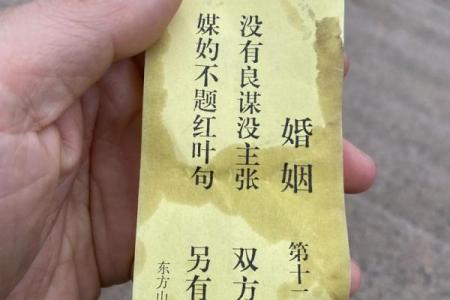 婚姻 第十二
没有良谋没主张 双方
媒妁不题红叶句 另有
东方山